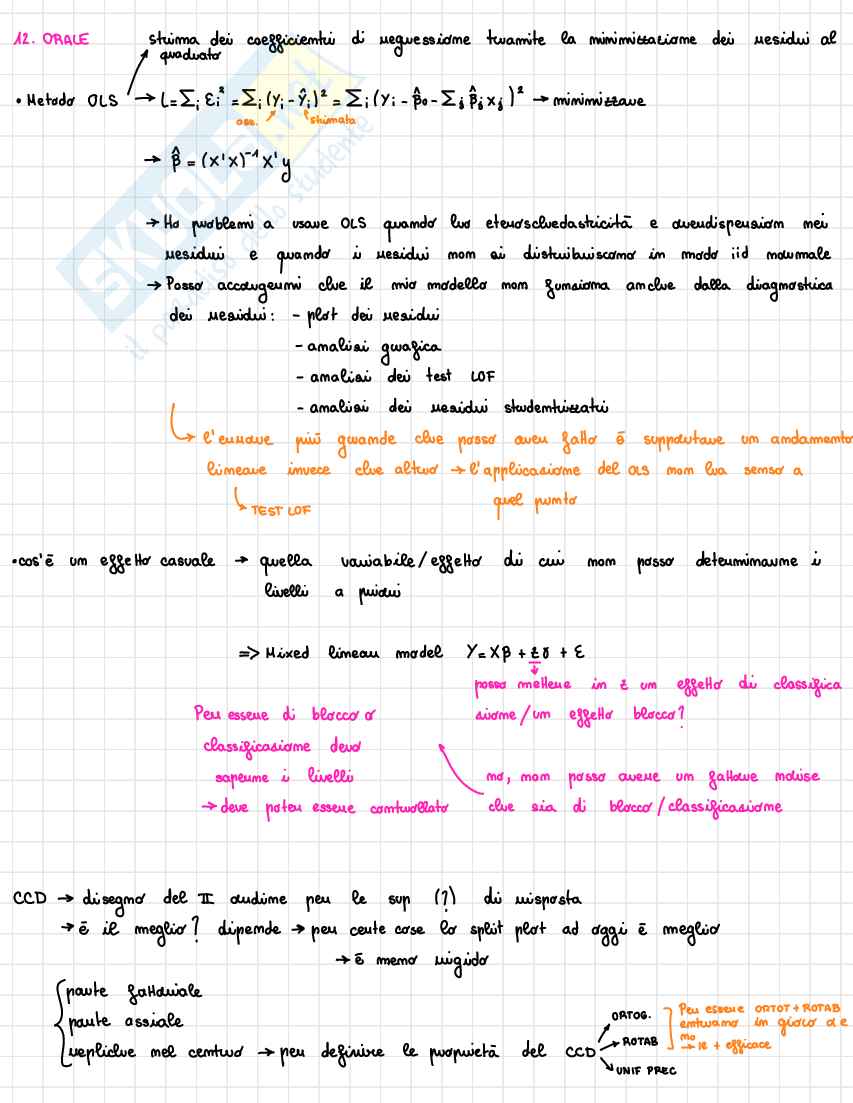 12. ORALE
stima dei coefficienti di regressione tramite la minimizzazione dei residui al
quadrato
• Metodo OLS → L = Σi εi² = Σi (yi - ŷi)² = Σi (yi - β̂0 - Σj β̂j xj)² → minimizzare
oss. stimata
→ β̂ = (x'x)⁻¹ x'y
→ Ho problemi a usare OLS quando ho eteroschedasticità e overdispersion nei
residui e quando i residui non si distribuiscono in modo iid normale
→ Posso accorgermi che il mio modello non funziona anche dalla diagnostica
dei residui: - plot dei residui
- analisi grafica
- analisi dei test LOF
- analisi dei residui studentizzati
→ l'errore più grande che posso aver fatto è supportare un andamento
lineare invece che altro → l'applicazione del OLS non ha senso a
quel punto
→ TEST LOF
• cos'è un effetto casuale → quella variabile/effetto di cui non posso determinarne i
livelli a priori
=> Mixed linear model Y = Xβ + zγ + ε
posso mettere in z un effetto di classifica
zione/un effetto blocco?
Per essere di blocco o
classificazione devo
saperne i livelli
→ deve poter essere controllato
no, non posso avere un fattore noise
che sia di blocco/classificazione
CCD → disegno del II ordine per le sup (?) di risposta
→ è il meglio? dipende → per certe cose lo split plot ad oggi è meglio
→ è meno rigido
parte fattoriale
parte assiale
repliche nel centro → per definire le proprietà del CCD
ORTOG.
→ ROTAB
UNIF PREC
Per essere ORTOT + ROTAB
entrano in gioco α e
n0
→ è + efficace
SKUOLA.net
il paradiso dello studente